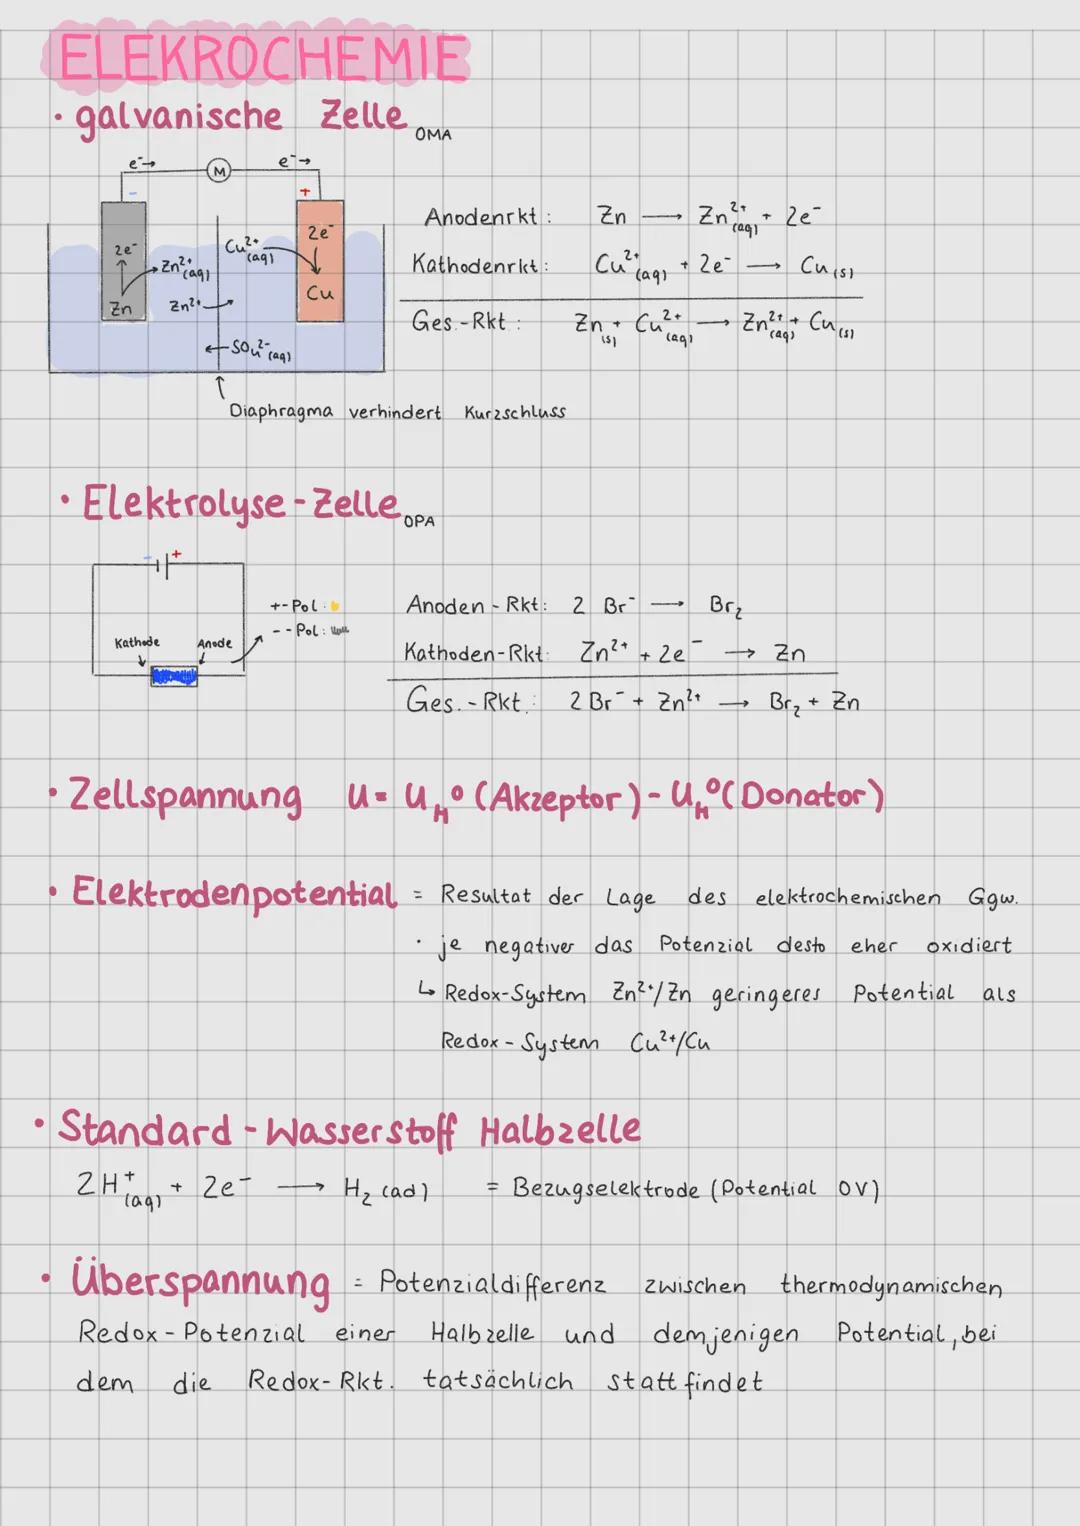 ELEKROCHEMIE
• galvanische Zelle OMA
e⁻→ M e⁻→
- +
2e⁻ Zn²⁺(aq) Cu²⁺(aq) 2e⁻
Zn Zn²⁺ Cu
SO₄²⁻(aq)
Diaphragma verhindert Kurzschluss
Anodenrkt: Zn → Zn²⁺(aq) + 2e⁻
Kathodenrkt: Cu²⁺(aq) + 2e⁻ → Cu(s)
Ges.-Rkt: Zn(s) + Cu²⁺(aq) → Zn²⁺(aq) + Cu(s)
• Elektrolyse-Zelle OPA
- +
Kathode Anode
+-Pol:
--Pol:
Anoden-Rkt: 2 Br⁻ → Br₂
Kathoden-Rkt: Zn²⁺ + 2e⁻ → Zn
Ges.-Rkt.: 2 Br⁻ + Zn²⁺ → Br₂ + Zn
• Zellspannung U = U_H⁰ (Akzeptor) - U_H⁰ (Donator)
• Elektrodenpotential = Resultat der Lage des elektrochemischen Ggw.
• je negativer das Potenzial desto eher oxidiert
↳ Redox-System Zn²⁺/Zn geringeres Potential als
Redox-System Cu²⁺/Cu
• Standard-Wasserstoff Halbzelle
2H⁺(aq) + 2e⁻ → H₂ (ad) = Bezugselektrode (Potential 0V)
• Überspannung = Potenzialdifferenz zwischen thermodynamischen
Redox-Potenzial einer Halbzelle und demjenigen Potential, bei
dem die Redox-Rkt. tatsächlich stattfindet